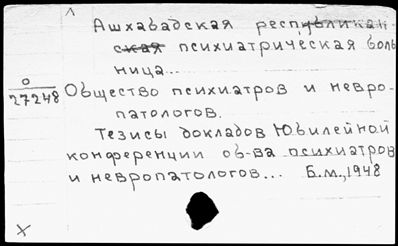 Ашхабадская республикан-
ская психиатрическая боль
ница...
О
27248
Общество психиатров и невро-
патологов.
Тезисы докладов Юбилейной
конференции об-ва психиатров
и невропатологов... Б.м., 1948